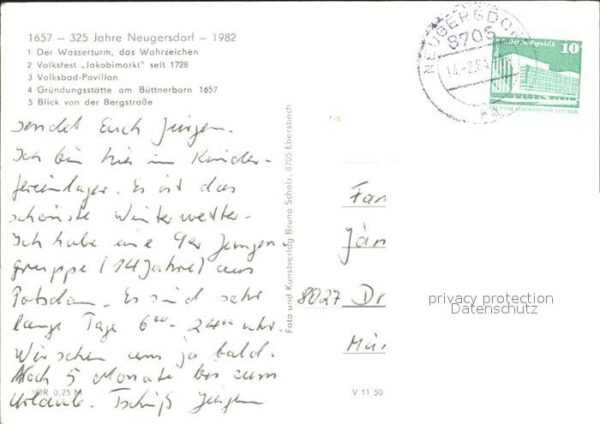 1657 – 325 Jahre Neugersdorf – 1982
1 Der Wasserturm, das Wahrzeichen
2 Volksfest „Jakobimarkt“ seit 1726
3 Volksbad-Pavillon
4 Gründungsstätte am Büttnerborn 1657
5 Blick von der Bergstraße
sendet Euch Jürgen.
Ich bin hier im Kinder-
ferienlager. Es ist das
schönste Winterwetter.
Ich habe eine 9er Jungen-
gruppe (14 Jahre) aus
Potsdam. Es sind sehr
lange Tage 6⁰⁰ - 24⁰⁰ Uhr.
Wir sehen uns ja bald.
Noch 5 Monate bis zum
Urlaub. Tschüß Jürgen
0,25 M
V 11 50
Foto und Kunstverlag Bruno Scholz, 8705 Ebersbach
NEUGERSDO
8705
14.-2.
10
Fam
Jän
8027 Dr
Mü
privacy protection
Datenschutz